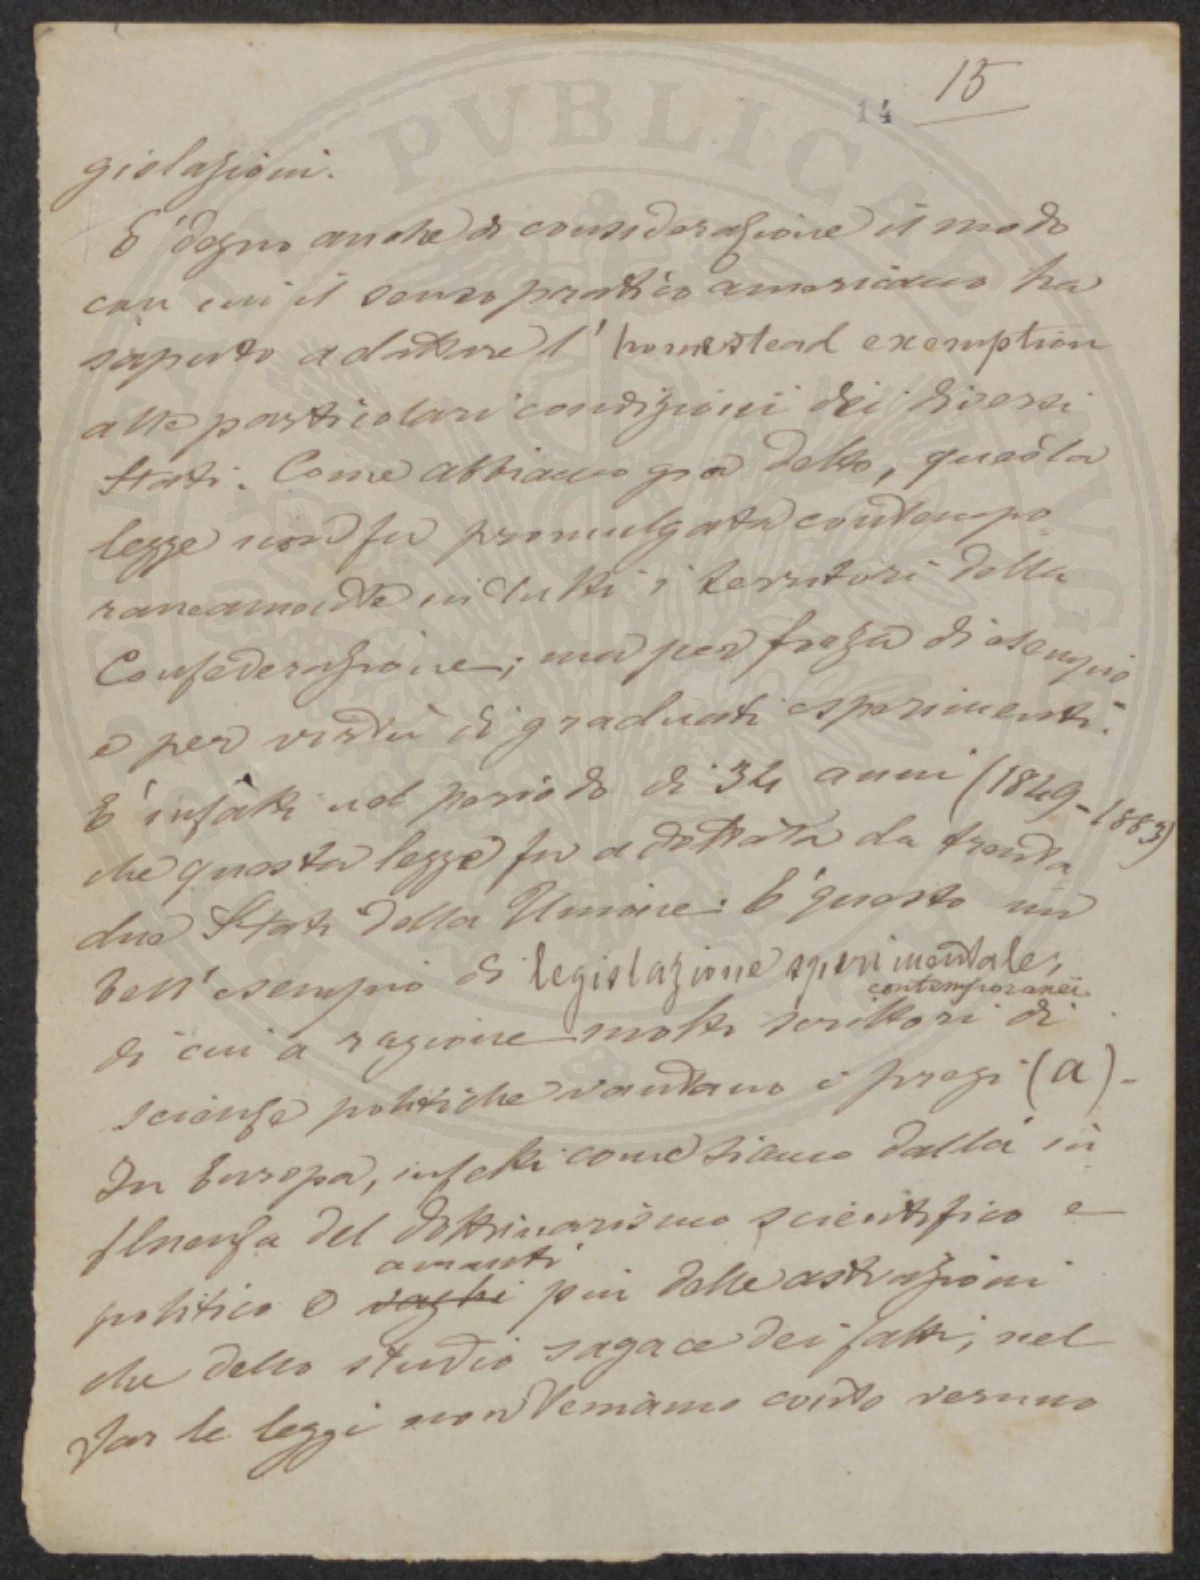 15
14
gislazioni.
E' degno anche di considerazione il modo
con cui il senso pratico americano ha
saputo adattare l' homestead exemption
alle particolari condizioni dei diversi
Stati. Come abbiamo già detto, questa
legge non fu promulgata contempo
raneamente in tutti i territori della
Confederazione; ma per forza di esempio
e per virtù di graduati esperimenti.
E' infatti nel periodo di 34 anni (1849-1883)
che questa legge fu adottata da trenta
due Stati della Unione. E' questo un
bell'esempio di legislazione sperimentale,
contemporanei
di cui a ragione molti scrittori di
scienze politiche vantano i pregi (a).
In Europa, infetti come siamo dalla in
fluenza del dottrinarismo scientifico e
amanti
politico e vaghi più delle astrazioni
che dello studio sagace dei fatti, nel
far le leggi non teniamo conto veruno
PVBLICAE